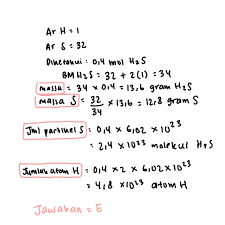 Ar H = 1
Ar S = 32
Diketahui : 0,4 mol H2S
BM H2S = 32 + 2(1) = 34
massa = 34 x 0,4 = 13,6 gram H2S
massa S = 32/34 x 13,6 = 12,8 gram S
Jml partikel S = 0,4 x 6,02 x 10^23
= 2,4 x 10^23 molekul H2S
Jumlah atom H = 0,4 x 2 x 6,02 x 10^23
= 4,8 x 10^23 atom H
Jawaban = E